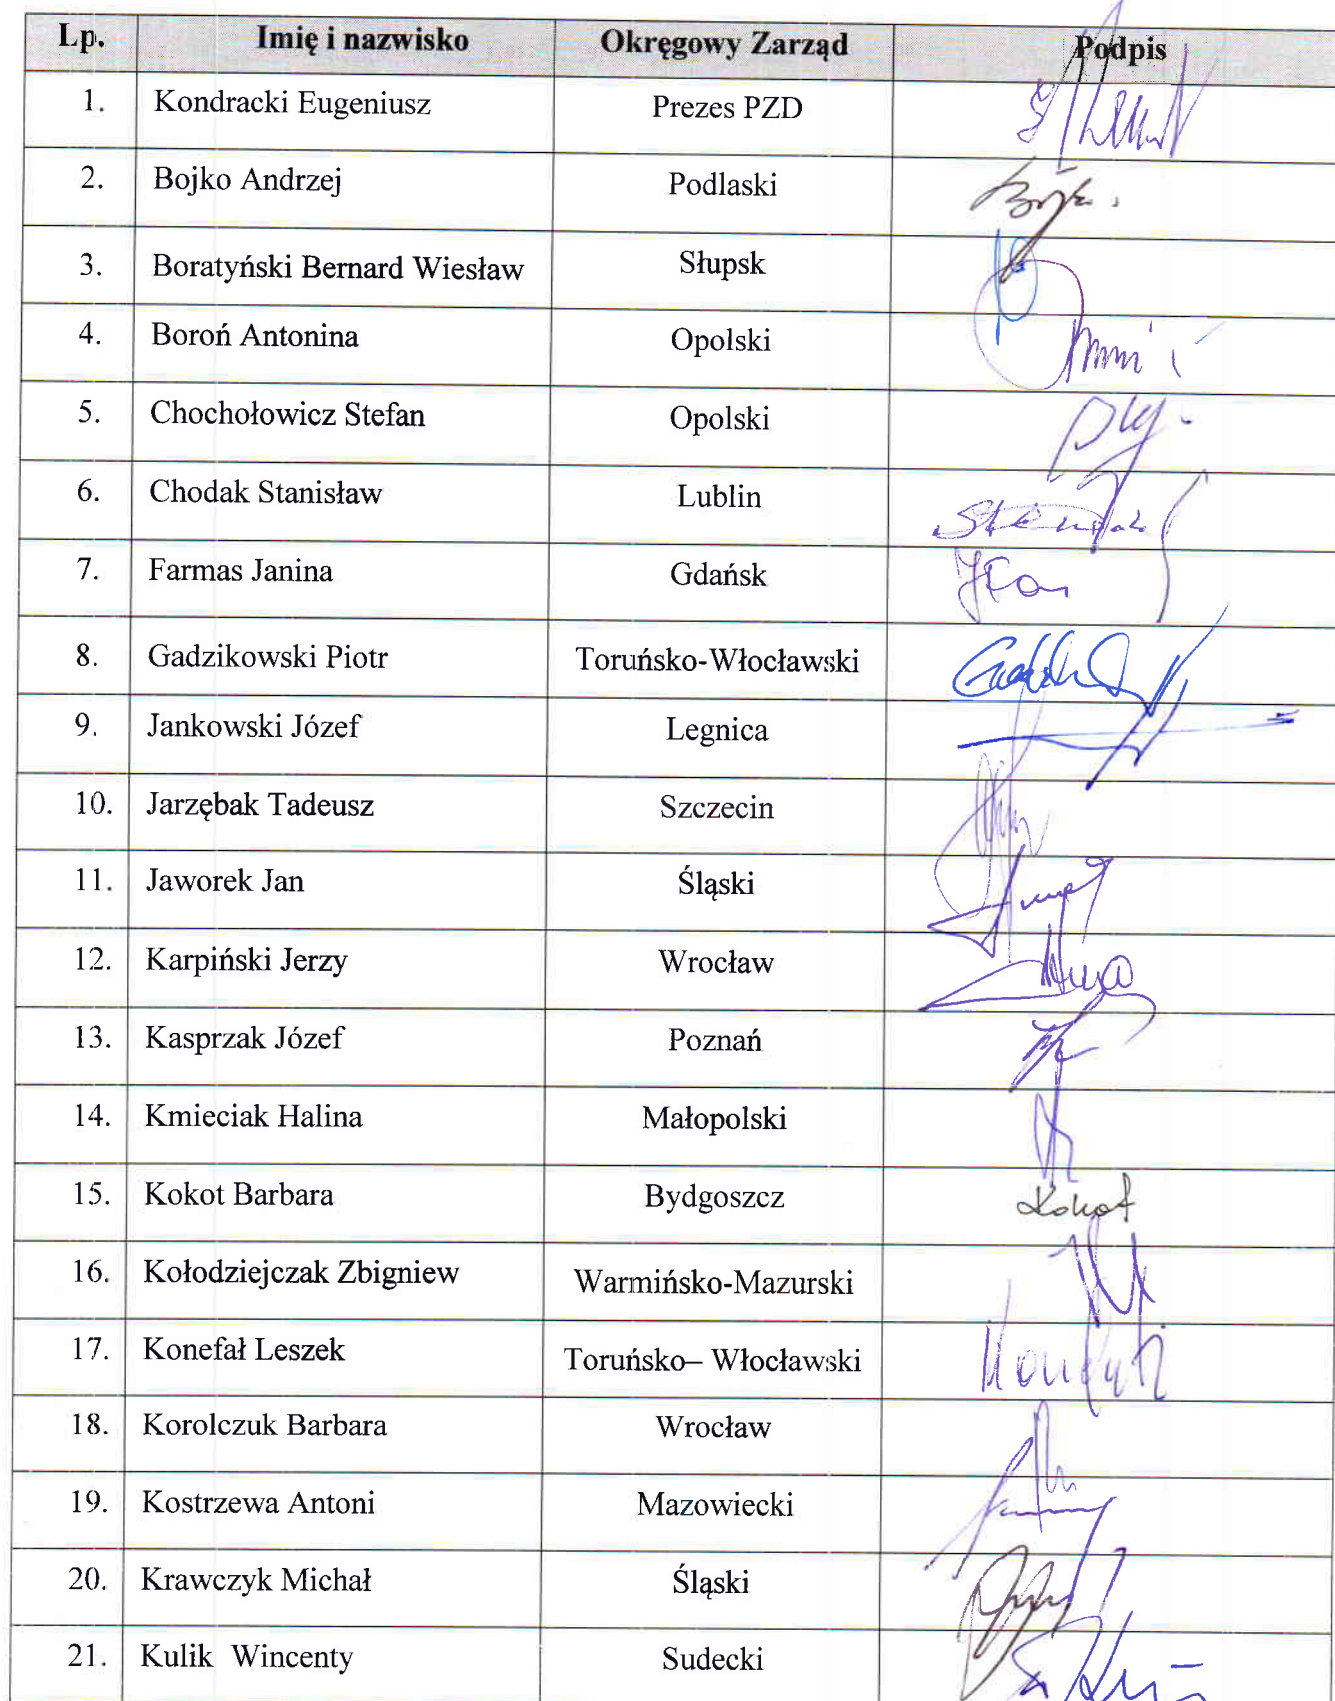 Lp. Imię i nazwisko Okręgowy Zarząd Podpis
1. Kondracki Eugeniusz Prezes PZD
2. Bojko Andrzej Podlaski
3. Boratyński Bernard Wiesław Słupsk
4. Boroń Antonina Opolski
5. Chochołowicz Stefan Opolski
6. Chodak Stanisław Lublin
7. Farmas Janina Gdańsk
8. Gadzikowski Piotr Toruńsko-Włocławski
9. Jankowski Józef Legnica
10. Jarzębak Tadeusz Szczecin
11. Jaworek Jan Śląski
12. Karpiński Jerzy Wrocław
13. Kasprzak Józef Poznań
14. Kmieciak Halina Małopolski
15. Kokot Barbara Bydgoszcz Kokot
16. Kołodziejczak Zbigniew Warmińsko-Mazurski
17. Konefał Leszek Toruńsko– Włocławski
18. Korolczuk Barbara Wrocław
19. Kostrzewa Antoni Mazowiecki
20. Krawczyk Michał Śląski
21. Kulik Wincenty Sudecki